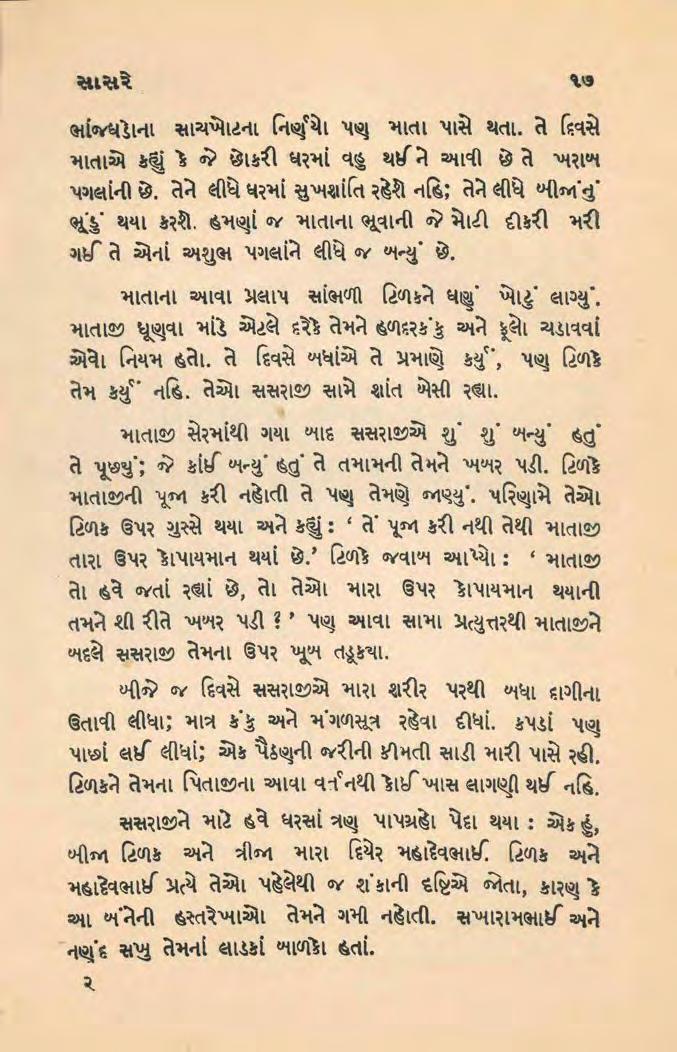 સાસરે ૧૭
ભાંજઘડોના સાચખોટના નિર્ણયો પણ માતા પાસે થતા. તે દિવસે
માતાએ કહ્યું કે જે છોકરી ઘરમાં વહુ થઈને આવી છે તે ખરાબ
પગલાંની છે. તેને લીધે ઘરમાં સુખશાંતિ રહેશે નહિ; તેને લીધે બીજાંનું
ભૂંડું થયા કરશે. હમણાં જ માતાના ભૂવાની જે મોટી દીકરી મરી
ગઈ તે એનાં અશુભ પગલાંને લીધે જ બન્યું છે.
માતાના આવા પ્રલાપ સાંભળી ટિળકને ઘણું ખોટું લાગ્યું.
માતાજી ધૂણવા માંડે એટલે દરેકે તેમને હળદરકંકુ અને ફૂલો ચડાવવાં
એવો નિયમ હતો. તે દિવસે બધાંએ તે પ્રમાણે કર્યું, પણ ટિળકે
તેમ કર્યું નહિ. તેઓ સસરાજી સામે શાંત બેસી રહ્યા.
માતાજી સેરમાંથી ગયા બાદ સસરાજીએ શું શું બન્યું હતું
તે પૂછયું; જે કાંઈ બન્યું હતું તે તમામની તેમને ખબર પડી. ટિળકે
માતાજીની પૂજા કરી નહોતી તે પણ તેમણે જાણ્યું. પરિણામે તેઓ
ટિળક ઉપર ગુસ્સે થયા અને કહ્યું : ‘ તેં પૂજા કરી નથી તેથી માતાજી
તારા ઉપર કોપાયમાન થયાં છે.’ ટિળકે જવાબ આપ્યો : ‘ માતાજી
તો હવે જતાં રહ્યાં છે, તો તેઓ મારા ઉપર કોપાયમાન થયાની
તમને શી રીતે ખબર પડી ? ’ પણ આવા સામા પ્રત્યુત્તરથી માતાજીને
બદલે સસરાજી તેમના ઉપર ખૂબ તડૂકયા.
બીજે જ દિવસે સસરાજીએ મારા શરીર પરથી બધા દાગીના
ઉતાવી લીધા; માત્ર કંકુ અને મંગળસૂત્ર રહેવા દીધાં. કપડાં પણ
પાછાં લઈ લીધાં; એક પૈઠણની જરીની કીમતી સાડી મારી પાસે રહી.
ટિળકને તેમના પિતાજીના આવા વર્તનથી કોઈ ખાસ લાગણી થઈ નહિ.
સસરાજીને માટે હવે ઘરસાં ત્રણ પાપગ્રહો પેદા થયા : એક હું,
બીજા ટિળક અને ત્રીજા મારા દિયેર મહાદેવભાઈ. ટિળક અને
મહાદેવભાઈ પ્રત્યે તેઓ પહેલેથી જ શંકાની દૃષ્ટિએ જોતા, કારણ કે
આ બંનેની હસ્તરેખાઓ તેમને ગમી નહોતી. સખારામભાઈ અને
નણંદ સખુ તેમનાં લાડકાં બાળકો હતાં.
૨